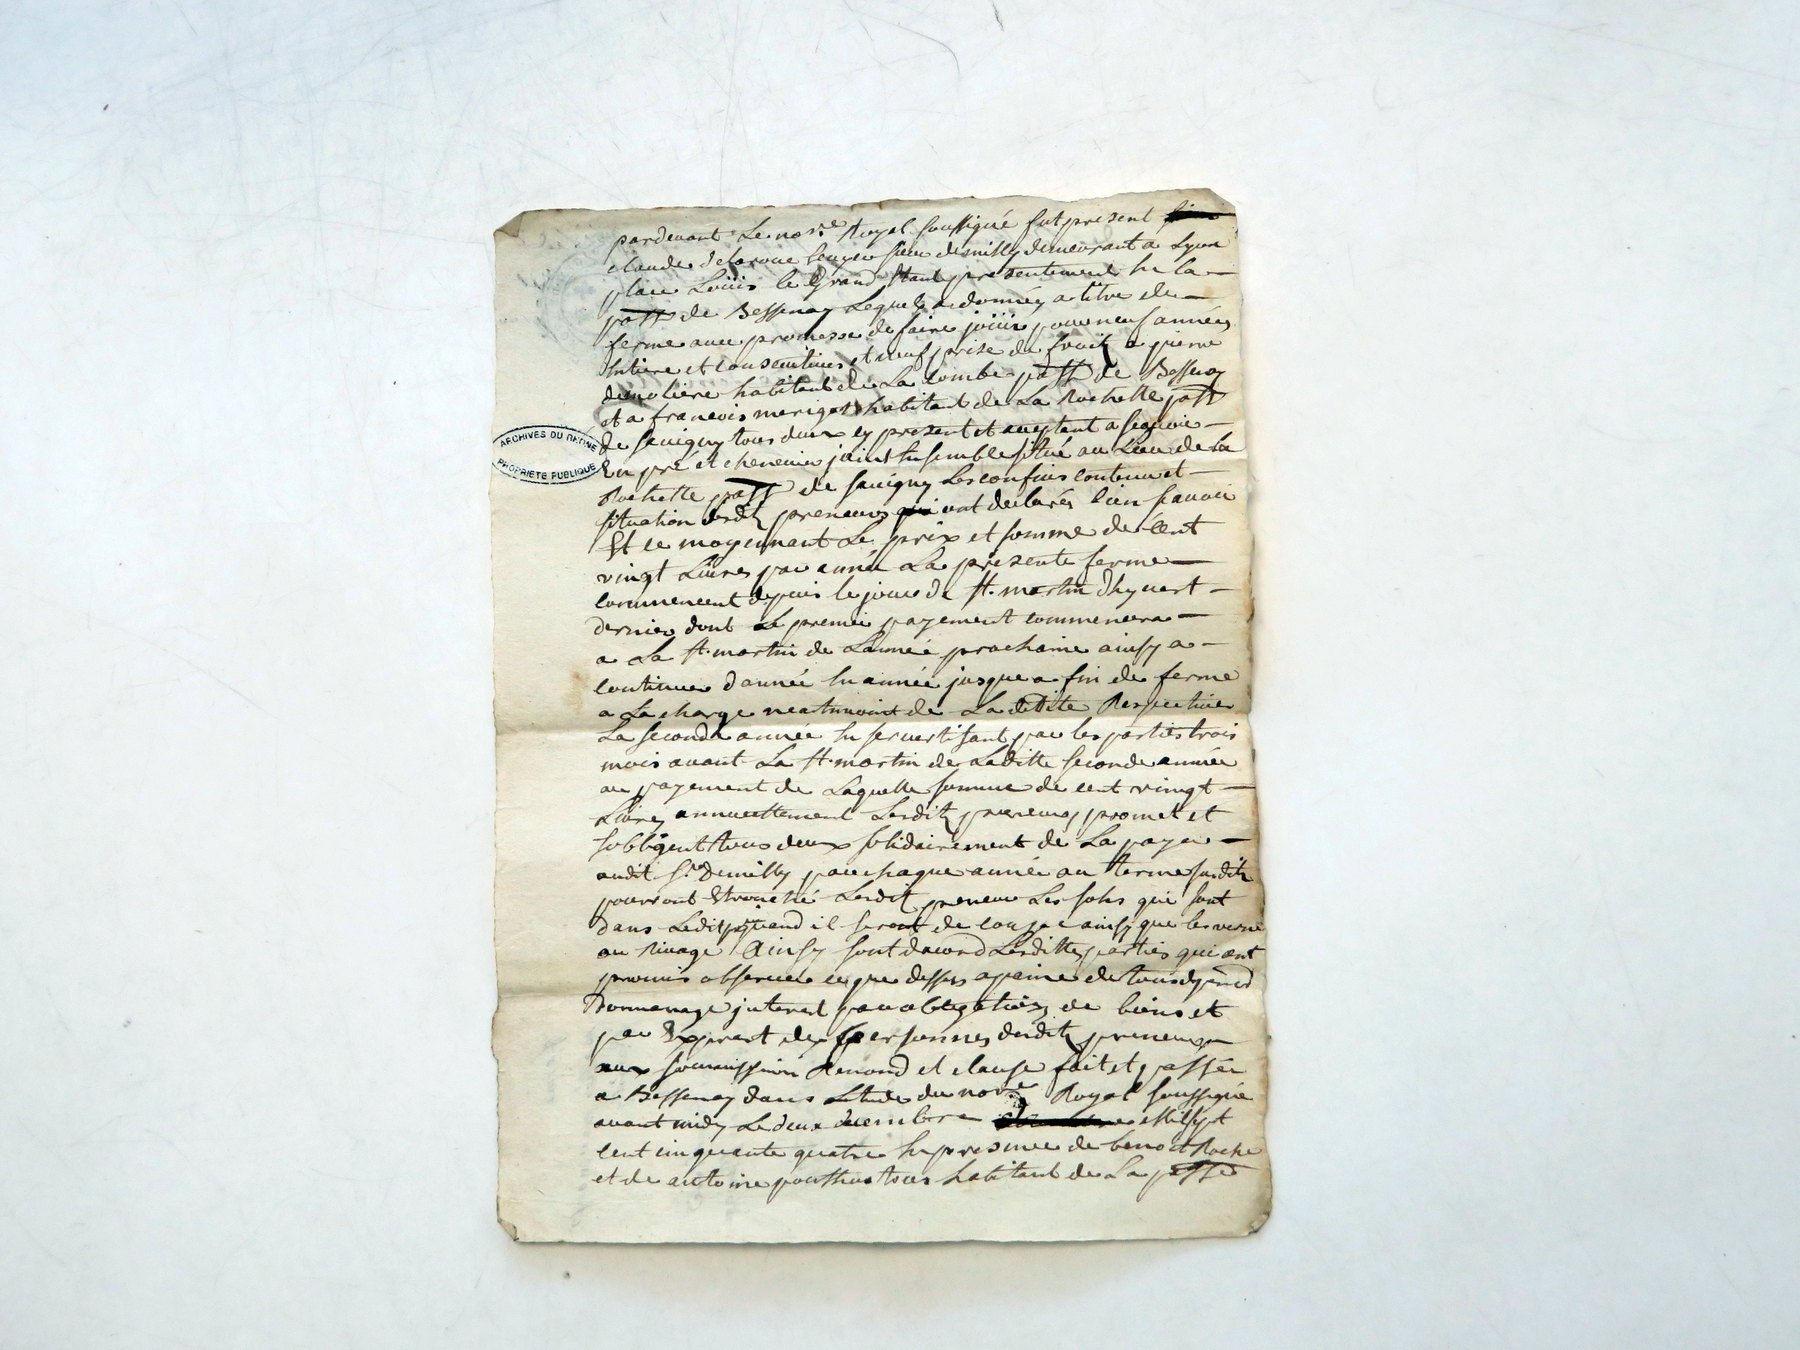 pardevant Le nore Royal soussigné fut present
claude delaroue Ecuyer sieur demilly demeurant a Lyon
place Loüis le Grand Etant presentement sur la
passe de Bessenay Lequel a donnéz a titre de
ferme avec promesse de faire joüir pour neuf années
Entiere et consecutives et neuf prise de fruitz a pierre
demoliere habitant de La combe passe de Bessenay
et a francois merigot habitant de La Rochette passe
de savigny tous deux cy present et aceptant a scavoir
En pré et chenevier joint Ensemble situé au Lieu de la
Rochette passe de savigny Les confins contenu et
situation lesditz preneurs ont declarés bien scavoir
Et ce moyennant Le prix et somme de cent
vingt Livres par année La presente ferme
commencent depuis le jour de st. martin dhyvert
dernier dont Le premier payement commencera
a La st. martin de Lannée prochaine ainsy a
continuer dannée En année jusque a fin de ferme
a La charge neantmoint de La ditte Respective
La seconde année En servertisant par les partits trois
mois avant La st. martin de Laditte seconde année
au payement de Laquelle somme de cent vingt
Livrez annuellement Lesditz preneurs promet et
sobligent tous deux solidairement de La payer
audit sr. Demilly par chaque année au terme susditz
pourront Ebranché Lesditz preneur Les sols qui sont
dans Ledit pré quand il seront de coupe ainsy que les verne
au Rivage Ainsy sont dacord Lesdittes parties qui ont
promis observer ce que dessus a paine de tous depend
Dommage interest par obligation de biens et
par Exprest des personnes desditz preneurs
aux soumission Renond et clause fait et passée
a Bessenay dans Letude du nore Royal soussigné
avant midy Le deux decembre Mil sept
cent cinquante quatre En presence de benoit Roche
et de antoine ponthus tous habitant de La passe
ARCHIVES DU RHONE
PROPRIETE PUBLIQUE